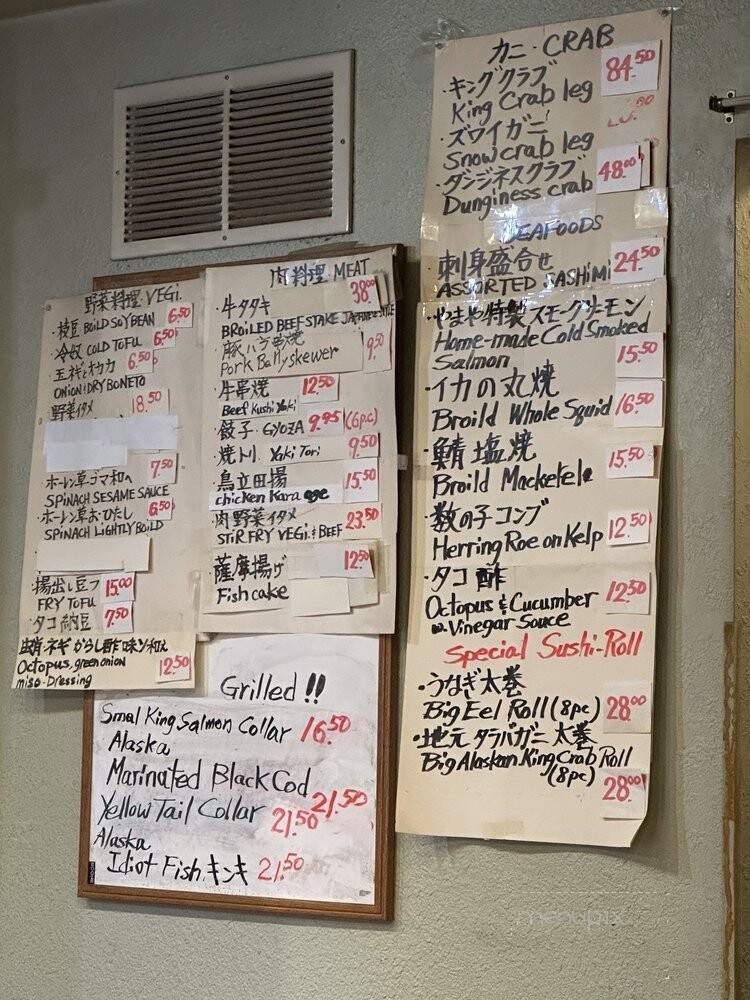 野菜料理 VEGi.
・枝豆 BOiLD SOYBEAN 6.50
・冷奴 COLD TOFU 6.50
・玉ネギとオカカ 6.50
ONION & DRY BONETO
・野菜イタメ 18.50
ホーレン草ゴマ和へ 7.50
SPINACH SESAME SAUCE
・ホーレン草おひたし 6.50
SPINACH LIGHTLY BOILD
・揚出し豆フ 15.00
FRY TOFU
・タコ納豆 7.50
ネギ からし酢味ソ和え
Octopus, green onion
miso-Dressing 12.50
肉料理 MEAT
・牛タタキ 38.00
BROILED BEEF STAKE JAPANESE STYLE
・豚バラ串焼 9.50
Pork Bellyskewer
・牛串焼 12.50
Beef Kushi Yaki
・餃子・GYOZA 9.95 (6pc)
・焼トリ Yaki Tori 9.50
・鳥立田揚 15.50
chicken Kara age
・肉野菜イタメ 23.50
STIR FRY VEGi. & BEEF
・薩摩揚げ 12.50
Fish cake
Grilled !!
Smal King Salmon Collar 16.50
Alaska
Marinated Black Cod 21.50
Yellow Tail Collar 21.50
Alaska
Idiot Fish キンキ 21.50
カニ・CRAB
・キングクラブ 84.50
King Crab leg
・ズワイガニ
Snow crab leg
・ダンジネスクラブ 48.00
Dunginess crab
SEAFOODS
・刺身盛合せ 24.50
ASSORTED SASHIMI
・やまや特製スモークサーモン
Home-made Cold Smoked
Salmon 15.50
・イカの丸焼
Broild Whole Squid 16.50
・鯖塩焼
Broild Mackekele 15.50
・数の子コンブ
Herring Roe on Kelp 12.50
・タコ酢
Octopus & Cucumber 12.50
w. Vinegar Sauce
Special Sushi-Roll
・うなぎ太巻
Big Eel Roll (8pc) 28.00
・地元 タラバガニ 太巻
Big Alaskan King Crab Roll
(8pc) 28.00
menupix